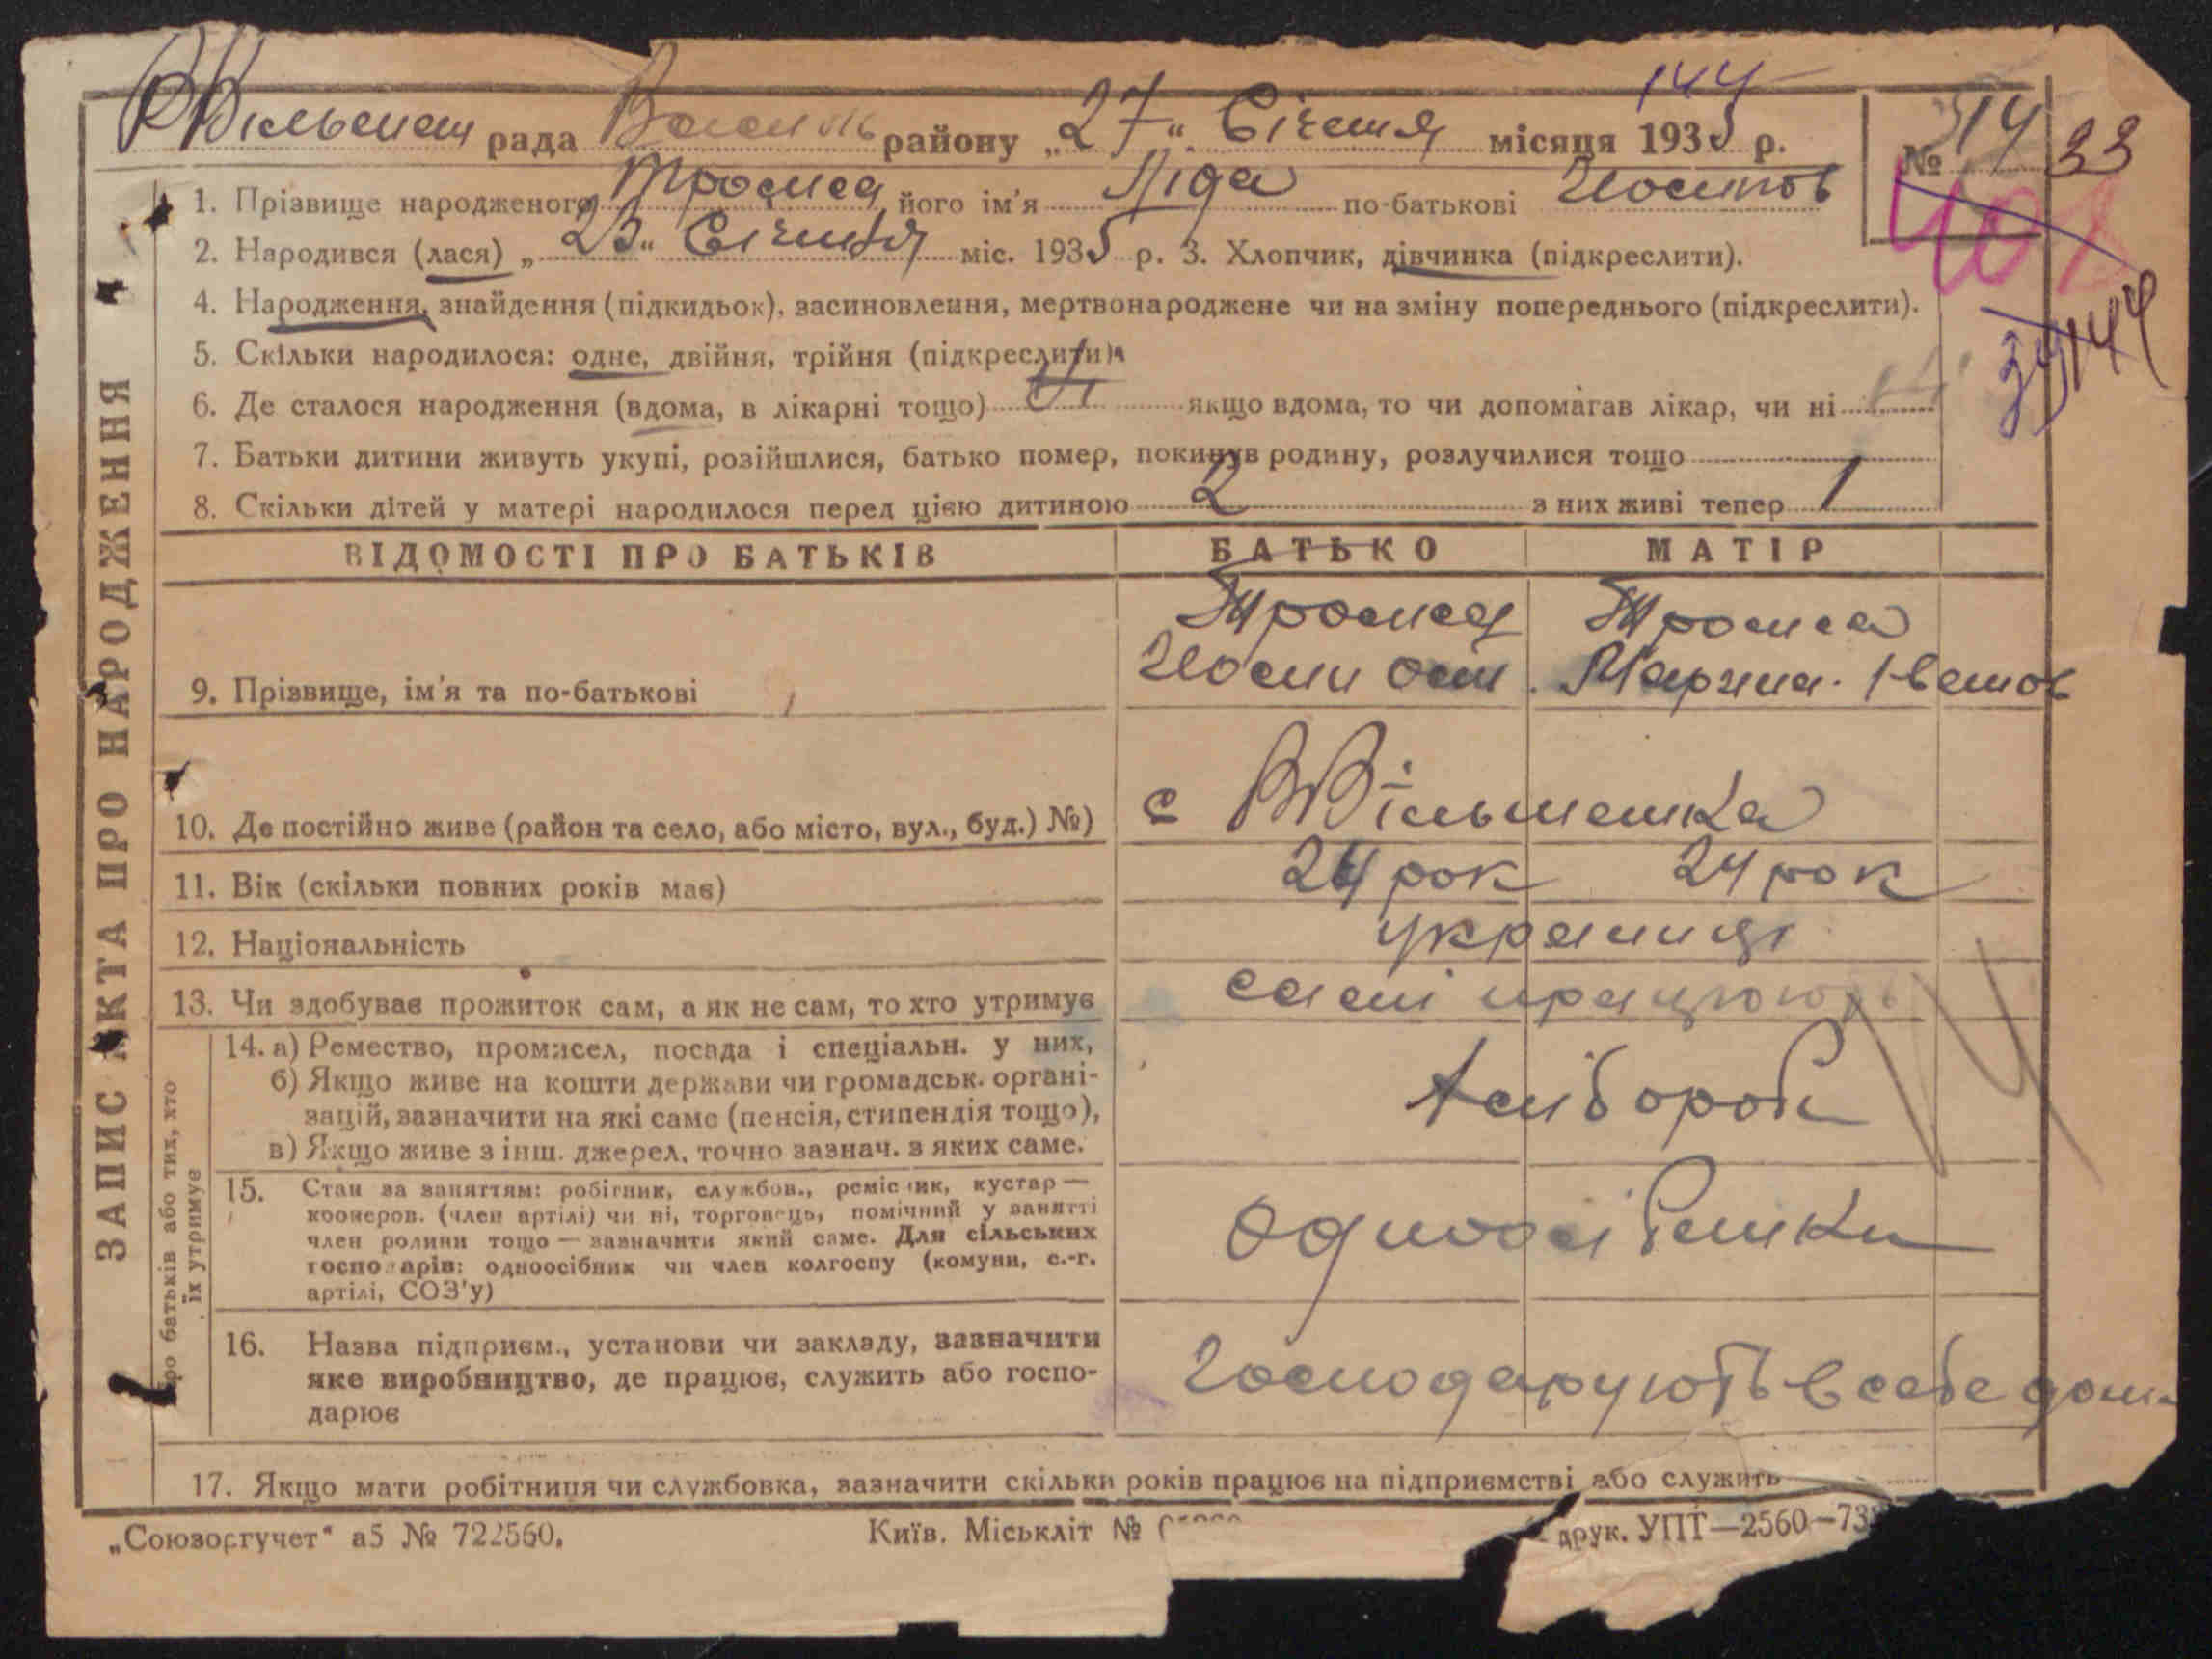 144
ВВільшан рада Васильк району „27“ Січня місяця 1935 р. № 14 33
1. Прізвище народженого Троян його ім'я Ліда по-батькові Йосипов
407
2. Народився (лася) „25“ Січня міс. 1935 р. 3. Хлопчик, дівчинка (підкреслити).
4. Народження, знайдення (підкидьок), засиновлення, мертвонароджене чи на зміну попереднього (підкреслити).
144
5. Скільки народилося: одне, двійня, трійня (підкреслити)
6. Де сталося народження (вдома, в лікарні тощо) якщо вдома, то чи допомагав лікар, чи ні
7. Батьки дитини живуть укупі, розійшлися, батько помер, покинув родину, розлучилися тощо
8. Скільки дітей у матері народилося перед цією дитиною 2 з них живі тепер 1
ЗАПИС АКТА ПРО НАРОДЖЕННЯ
ВІДОМОСТІ ПРО БАТЬКІВ БАТЬКО МАТІР
9. Прізвище, ім'я та по-батькові
Марина Іванов
10. Де постійно живе (район та село, або місто, вул., буд.) №) с ВВільшанка
11. Вік (скільки повних років має) 24 рок 24 рок
12. Національність українці
13. Чи здобуває прожиток сам, а як не сам, то хто утримує самі працюють
Про батьків або тих, хто їх утримує
14. а) Ремество, промисел, посада і спеціальн. у них,
б) Якщо живе на кошти держави чи громадськ. органі-
зацій, зазначити на які саме (пенсія, стипендія тощо),
в) Якщо живе з інш. джерел, точно зазнач. з яких саме.
хлібороби
15. Стан за заняттям: робітник, службов., ремісник, кустар —
кооперов. (член артілі) чи ні, торговець, помічний у занятті
член родини тощо — зазначити який саме. Для сільських
господарів: одноосібник чи член колгоспу (комуни, с.-г.
артілі, СОЗ'у)
одноосібники
16. Назва підприєм., установи чи закладу, зазначити
яке виробництво, де працює, служить або госпо-
дарює
Господарують в себе дома
17. Якщо мати робітниця чи службовка, зазначити скільки років працює на підприємстві або служить
„Союзоргучет“ а5 № 722560. Київ. Міськліт № друк. УПТ—2560—73